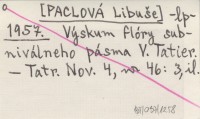 [PACLOVÁ Libuše] -lp-
1957. Výskum flóry sub-
niválneho pásma V. Tatier.
— Tatr. Nov. 4, no 46: 3, il.